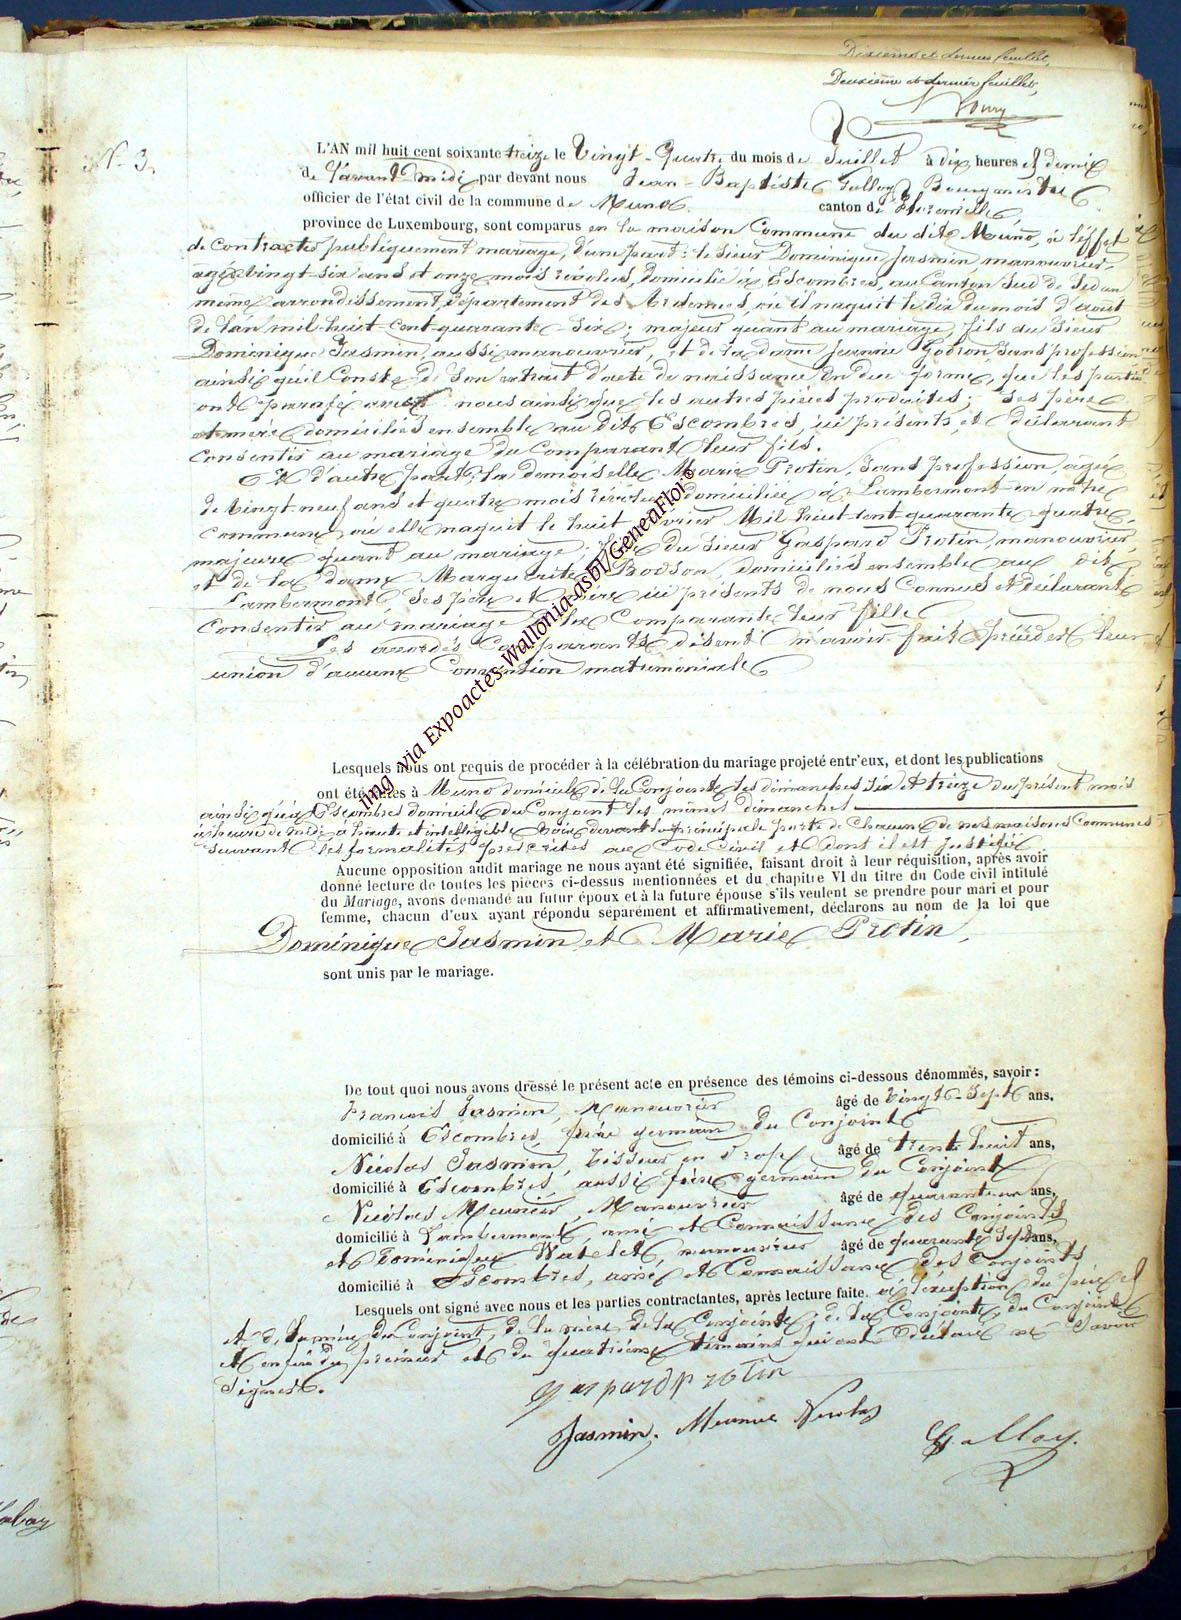 Deuxième et dernier feuillet,
Deuxième et dernier feuillet,
N° 3.
L'AN mil huit cent soixante treize le Vingt-Quatre du mois de Juillet à dix heures et demie
de l'avant midi, par devant nous Jean-Baptiste Galloy, Bourgmestre
officier de l'état civil de la commune de Muno canton de Florenville,
province de Luxembourg, sont comparus en la maison Commune du dit Muno, à l'effet
de Contracter publiquement mariage, d'une part: le sieur Dominique Jasmin, manouvrier,
âgé de vingt-six ans et onze mois révolus, domicilié à Escombres, au Canton Sud de Sedan
même arrondissement, département des Ardennes, où il naquit le dix du mois d'août
de l'an mil-huit-cent-quarante-six; majeur quant au mariage, fils du Sieur
Dominique Jasmin, aussi manouvrier, et de la dame Jeanne Godron, Sans profession
ainsi qu'il Conste de Son extrait d'acte de naissance en due forme, que les parties
ont parafé avec nous ainsi que les autres pièces produites; Ses père
et mère domiciliés ensemble au dit Escombres, ici présents, et déclarant
Consentir au mariage du Comparant leur fils.
Et d'autre part: la demoiselle Marie Protin, Sans profession, âgée
de vingt neuf ans et quatre mois révolus, domiciliée à Lambermont en notre
Commune, où elle naquit le huit février Mil-huit-cent-quarante-quatre,
majeure quant au mariage, fille du Sieur Gaspard Protin, manouvrier,
et de la dame Marguerite Bodson, domiciliés ensemble au dit
Lambermont, Ses père et mère ici présents de nous Connus et déclarant
Consentir au mariage de la Comparante leur fille.
Les accordés Comparants disent n'avoir fait précéder leur
union d'aucune Convention matrimoniale
Lesquels nous ont requis de procéder à la célébration du mariage projeté entr'eux, et dont les publications
ont été faites à Muno domicile de la Conjointe les dimanches Six et treize du présent mois
ainsi qu'à Escombres domicile du Conjoint les mêmes dimanches
à heure de midi à haute et intelligible voix devant la principale porte de Chacune de nos maisons Communes
suivant les formalités prescrites au Code Civil et dont il est justifié.
Aucune opposition audit mariage ne nous ayant été signifiée, faisant droit à leur réquisition, après avoir
donné lecture de toutes les pièces ci-dessus mentionnées et du chapitre VI du titre du Code civil intitulé
du Mariage, avons demandé au futur époux et à la future épouse s'ils veulent se prendre pour mari et pour
femme, chacun d'eux ayant répondu séparément et affirmativement, déclarons au nom de la loi que
Dominique Jasmin et Marie Protin,
sont unis par le mariage.
De tout quoi nous avons dressé le présent acte en présence des témoins ci-dessous dénommés, savoir:
François Jasmin, Manouvrier âgé de Vingt-Sept ans,
domicilié à Escombres, frère germain du Conjoint
Nicolas Jasmin, tisseur en drap âgé de trente huit ans,
domicilié à Escombres, aussi frère germain du Conjoint
Nicolas Meunier, Manouvrier âgé de quarante un ans,
domicilié à Lambermont, ami et Connaissance des Conjoints
et Dominique Watelet, manouvrier âgé de quarante Sept ans,
domicilié à Escombres, ami et Connaissance des Conjoints
Lesquels ont signé avec nous et les parties contractantes, après lecture faite, à l'exception du père et
et de la mère du Conjoint, de la mère de la Conjointe, de la Conjointe, du Conjoint
et enfin du premier et du quatrième témoins qui ont déclaré ne Savoir
Signer.
Gaspard Protin
Jasmin. Meunier Nicolas
Galloy.
img via Expoactes-Wallonia-asbl/GeneaFlor©